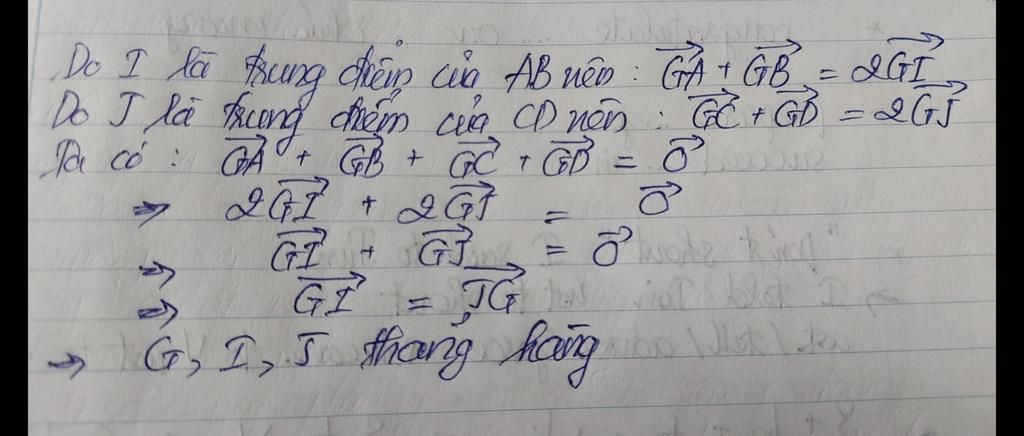 Do I là trung điểm của AB nên : \vec{GA} + \vec{GB} = 2\vec{GI}
Do J là trung điểm của CD nên : \vec{GC} + \vec{GD} = 2\vec{GJ}
Ta có : \vec{GA} + \vec{GB} + \vec{GC} + \vec{GD} = \vec{0}
⇒ 2\vec{GI} + 2\vec{GJ} = \vec{0}
⇒ \vec{GI} + \vec{GJ} = \vec{0}
⇒ \vec{GI} = \vec{JG}
⇒ G, I, J thẳng hàng